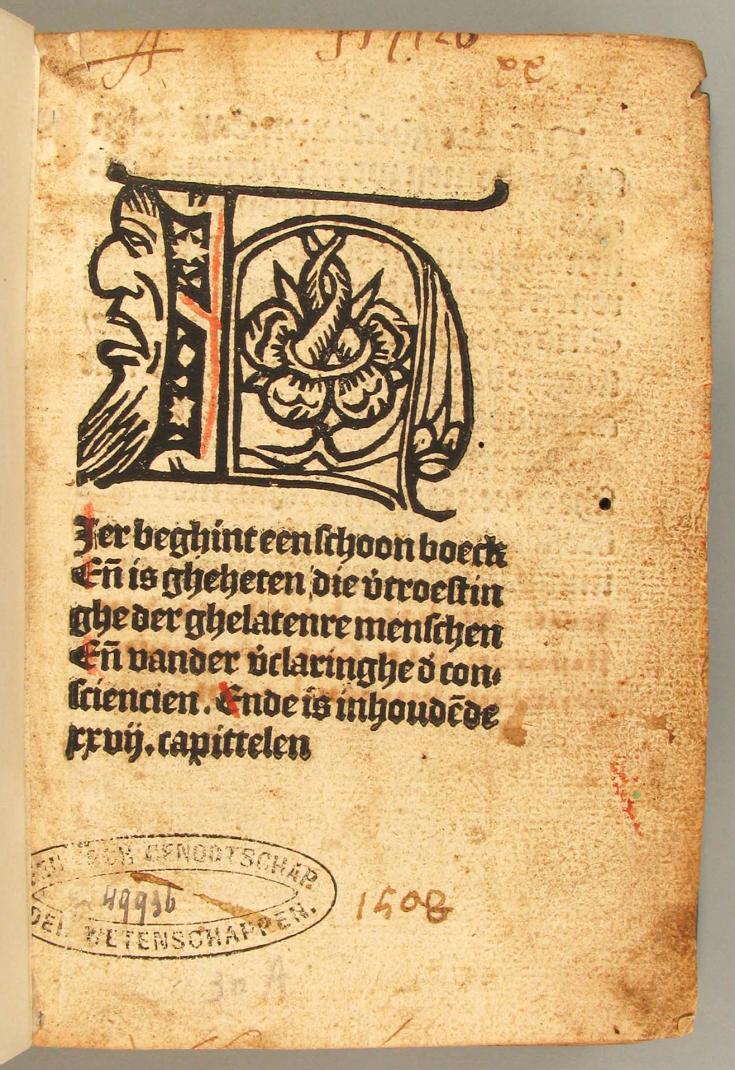 A
H
Jer beghint een schoon boeck
Eñ is gheheten die v̄troestin
ghe der ghelatenre menschen
Eñ vander v̄claringhe d̄ con⸗
sciencien. Ende is inhoudēde
xxvij. capittelen
GENOOTSCHAP
49936
DER WETENSCHAPPEN.
1508
3n A